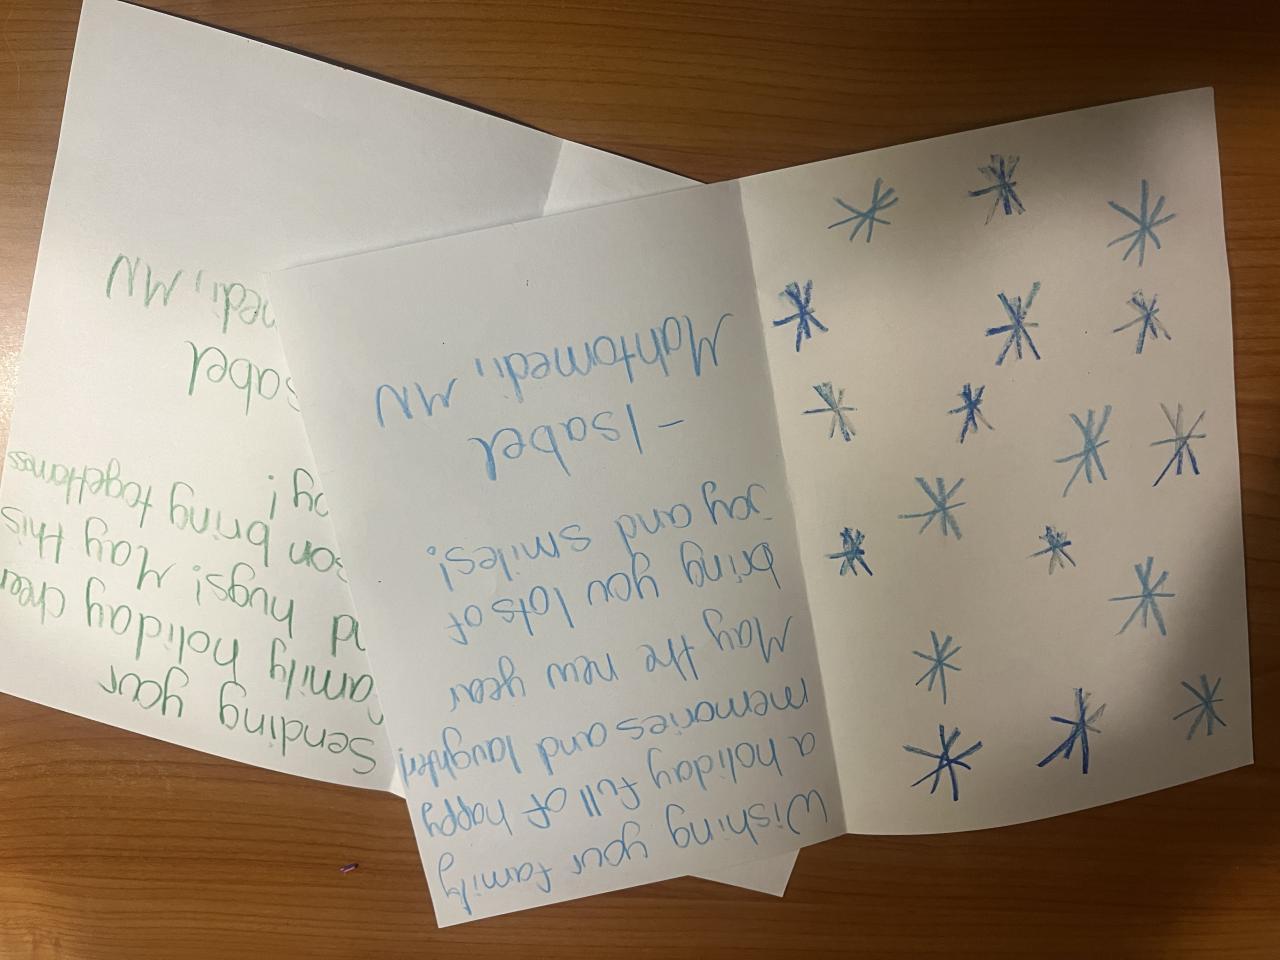 Wishing your family
a holiday full of happy
memories and laughter!
May the new year
bring you lots of
joy and smiles!
-Isabel
Mahtomedi, MN
Sending your
family holiday cheer
hugs! May this
bring togetherness
MN